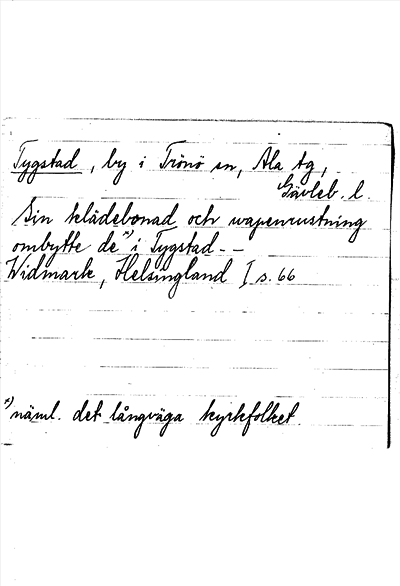 Tygstad, by i Trönö sn, Ala tg,
Gävleb. l.
Sin klädebonad och wapenrustning
ombytte de x) i Tygstad - -
Widmark, Helsingland I s. 66
x) näml. det långväga kyrkfolket.